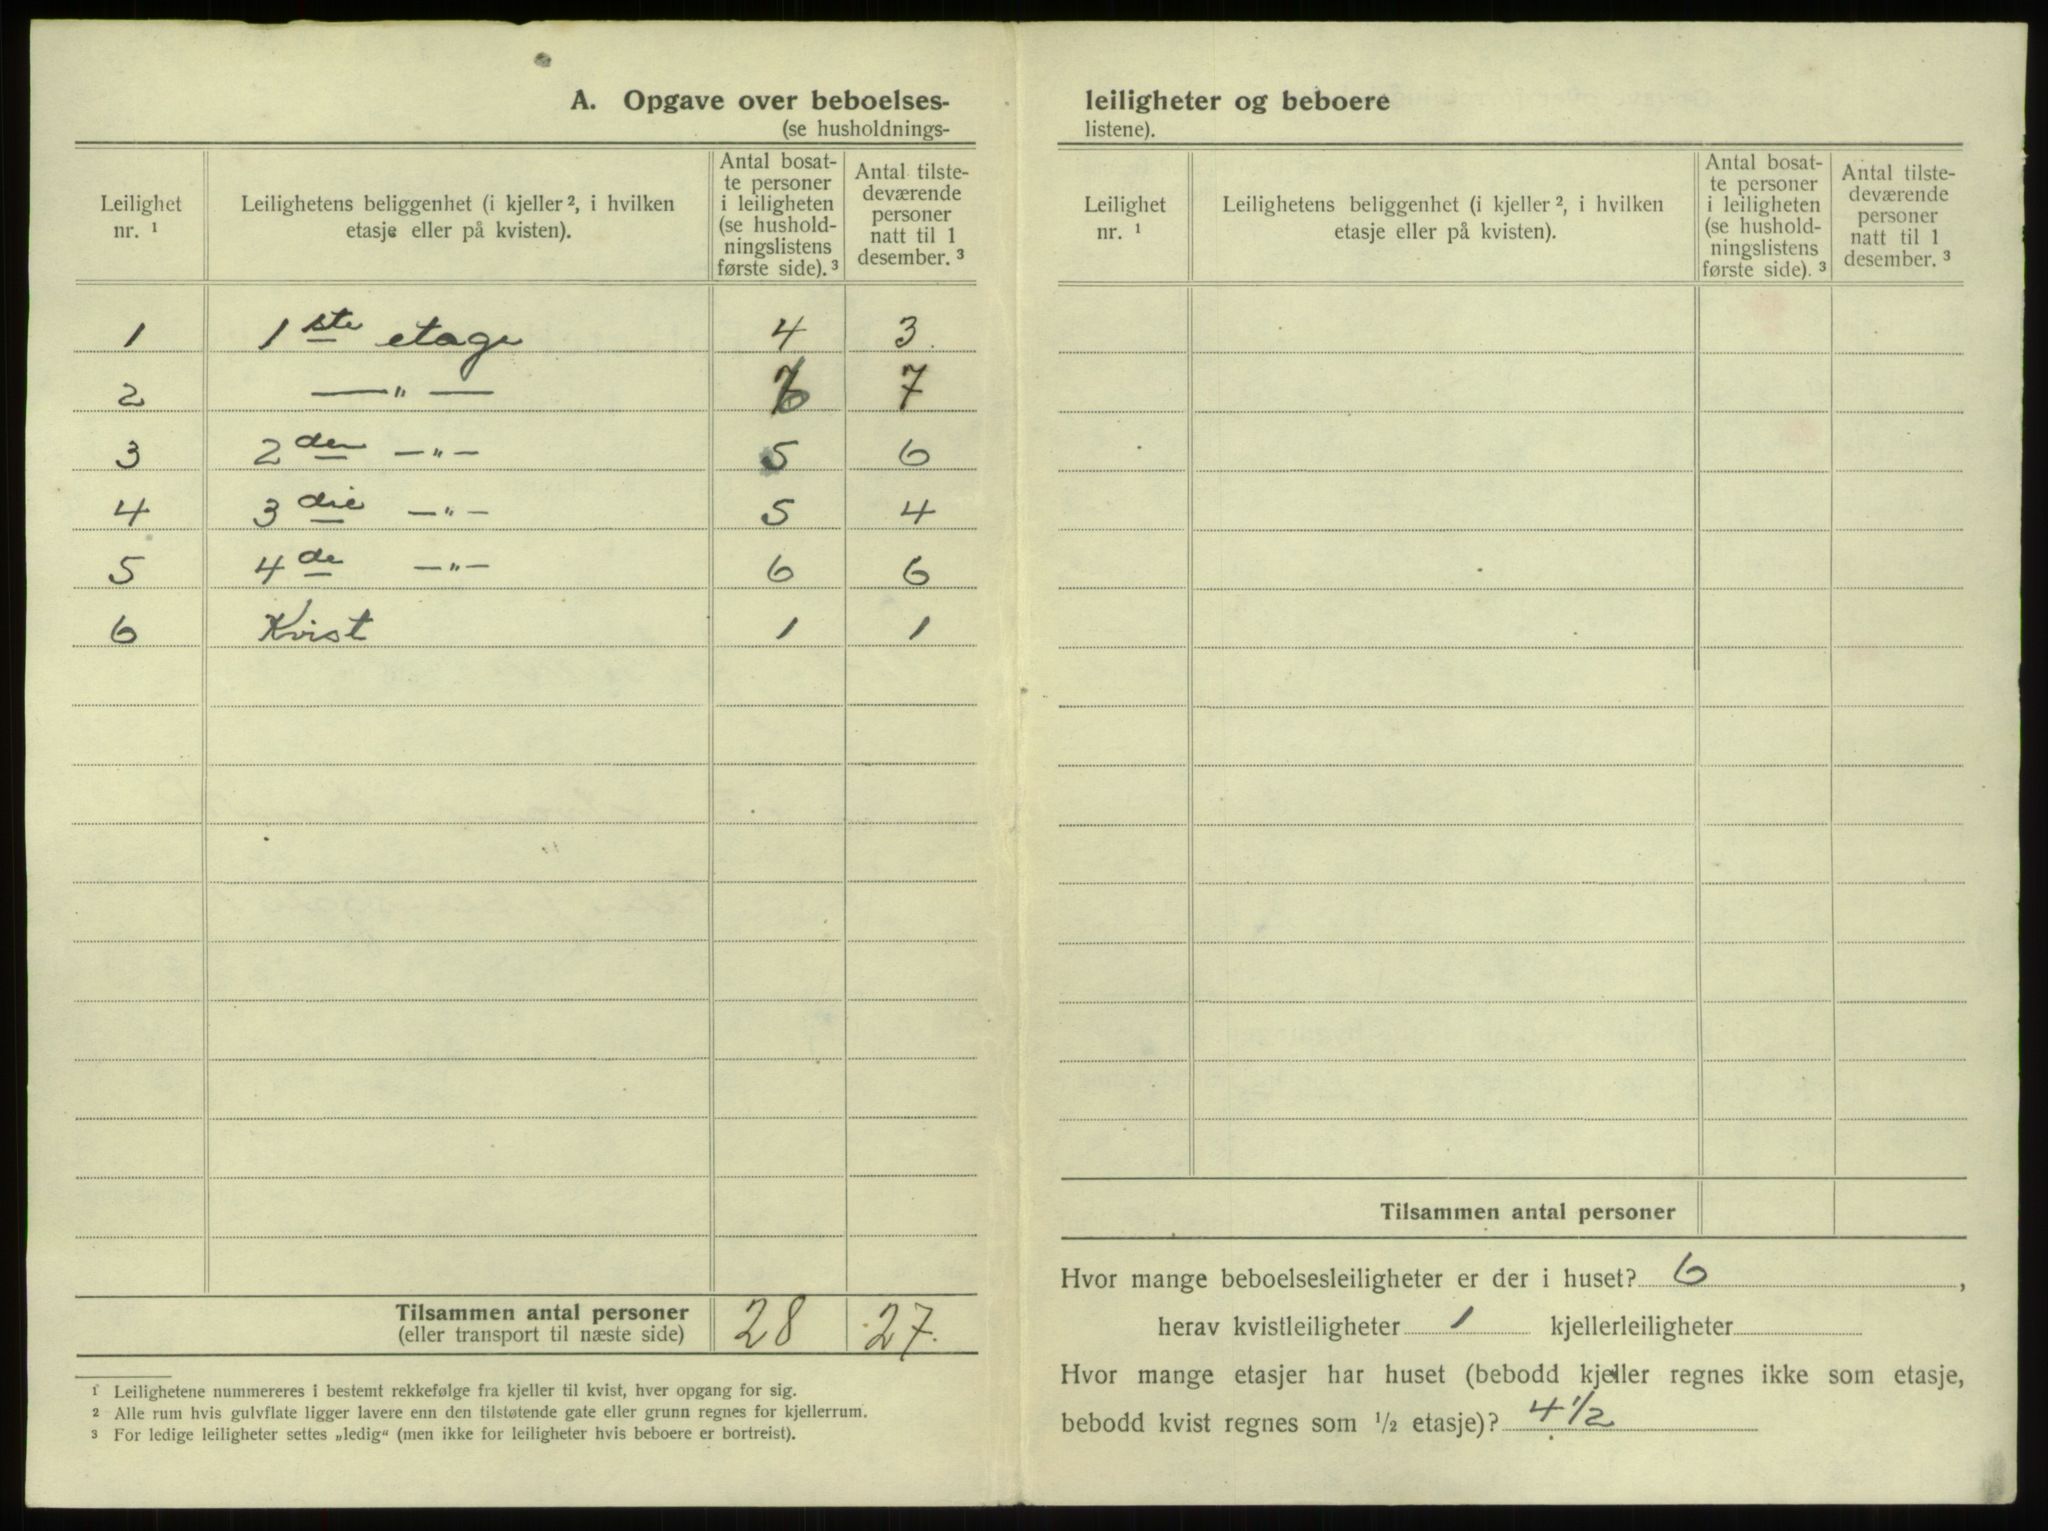 A. Opgave over beboelses-
(se husholdnings-
Leilighet nr. ¹ | Leilighetens beliggenhet (i kjeller ², i hvilken etasje eller på kvisten). | Antal bosat-te personer i leiligheten (se hushold-ningslistens første side). ³ | Antal tilste-deværende personer natt til 1 desember. ³
1 | 1ste etage | 4 | 3.
2 | —„— | | 7
3 | 2den —„— | 5 | 6
4 | 3die —„— | 5 | 4
5 | 4de —„— | 6 | 6
6 | Kvist | 1 | 1
Tilsammen antal personer (eller transport til næste side) | 28 | 27.
¹ Leilighetene nummereres i bestemt rekkefølge fra kjeller til kvist, hver opgang for sig.
² Alle rum hvis gulvflate ligger lavere enn den tilstøtende gate eller grunn regnes for kjellerrum.
³ For ledige leiligheter settes „ledig“ (men ikke for leiligheter hvis beboere er bortreist).
leiligheter og beboere
listene).
Leilighet nr. ¹ | Leilighetens beliggenhet (i kjeller ², i hvilken etasje eller på kvisten). | Antal bosat-te personer i leiligheten (se hushold-ningslistens første side). ³ | Antal tilste-deværende personer natt til 1 desember. ³
Tilsammen antal personer
Hvor mange beboelsesleiligheter er der i huset? 6,
herav kvistleiligheter 1 kjellerleiligheter
Hvor mange etasjer har huset (bebodd kjeller regnes ikke som etasje,
bebodd kvist regnes som ½ etasje)? 4½